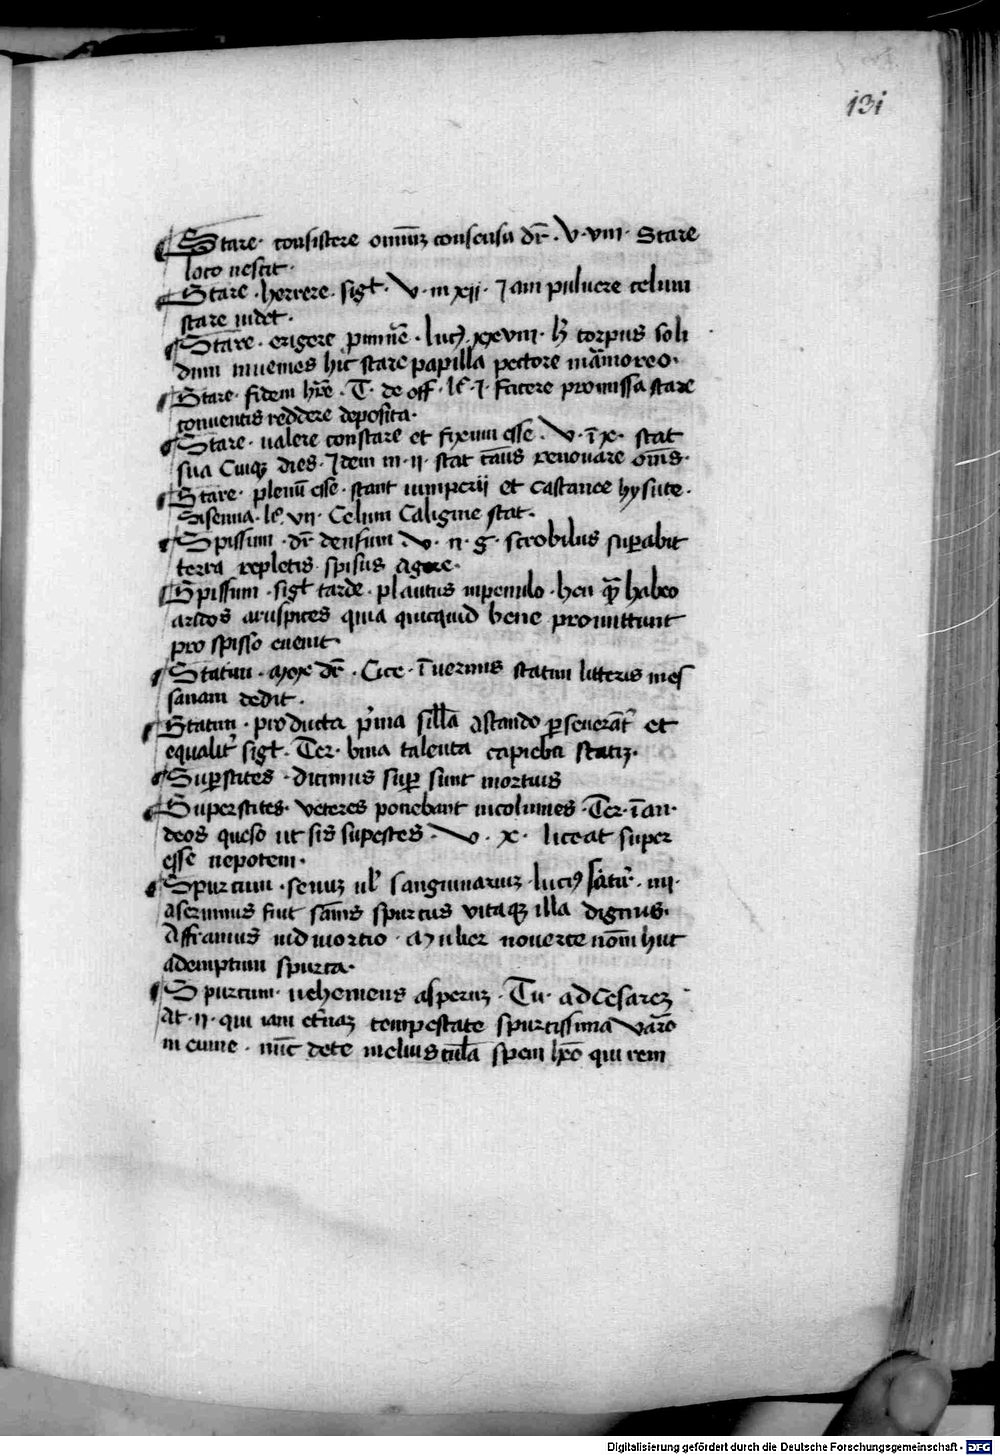 131
Stare · consistere omniuz consensu dr̄ · V · viii · Stare
loco nescit ·
Stare · horrere · sigt · V · in xii · Iam puluere celum
stare uidet ·
Stare · erigere · lucꝰ · xxviii · h̄ corpus soli
dum inuenies hic stare papilla pectore mārmoreo ·
Stare · fidem hr̄e · T · de off · lꝰ · i · facere promissa stare
conuentis reddere deposita ·
Stare · ualere constare et fixum esse · V · ī x · stat
sua Cuiqꝫ dies · Idem in · ii · stat cāus renouare om̄s ·
Stare · plenū esse · stant iumperii et castanee hysute ·
Sisenna · lꝰ · vii · Celum Caligine stat ·
Spissum · dr̄ densum · V · ii · g · scrobibus superabit
terra repletis spisus Agere ·
Spissum · sigt tarde · plautus inpenulo · heu habeo
arculos aruspices quia quicquid bene promittunt
pro spisso euenit
Statim · mox dr̄ · Cice · ī uermis statim litteris mes
sanam dedit ·
Statim · producta pͥma silla astando perseueranͭ et
equalitͬ sigt · Ter · bina talenta capiebā statiꝫ ·
Superstites · dicimus super sunt mortuis
Superstites · veteres ponebant incolumes · Ter · ī an ·
deos queso ut sis supestes · V · x · liceat super
esse nepotem ·
Spurcum · seuuꝫ ul̄ sanguinariuꝫ · lucꝰ satir̄ · iiii ·
aserninus fuit sām̄s spurcus vitaqꝫ illa dignus ·
Afframus uidmortio · Mulier nouerce nom̄ huc
ademptum spurca ·
Spurcum · uehemens asperuꝫ · Tu · ad Cesareꝫ
At · ii · qui iam etͥnaꝫ tempestate spurcissima varo
in eume · nūc dete melius tula spem hēo qui rem
Digitalisierung gefördert durch die Deutsche Forschungsgemeinschaft · DFG